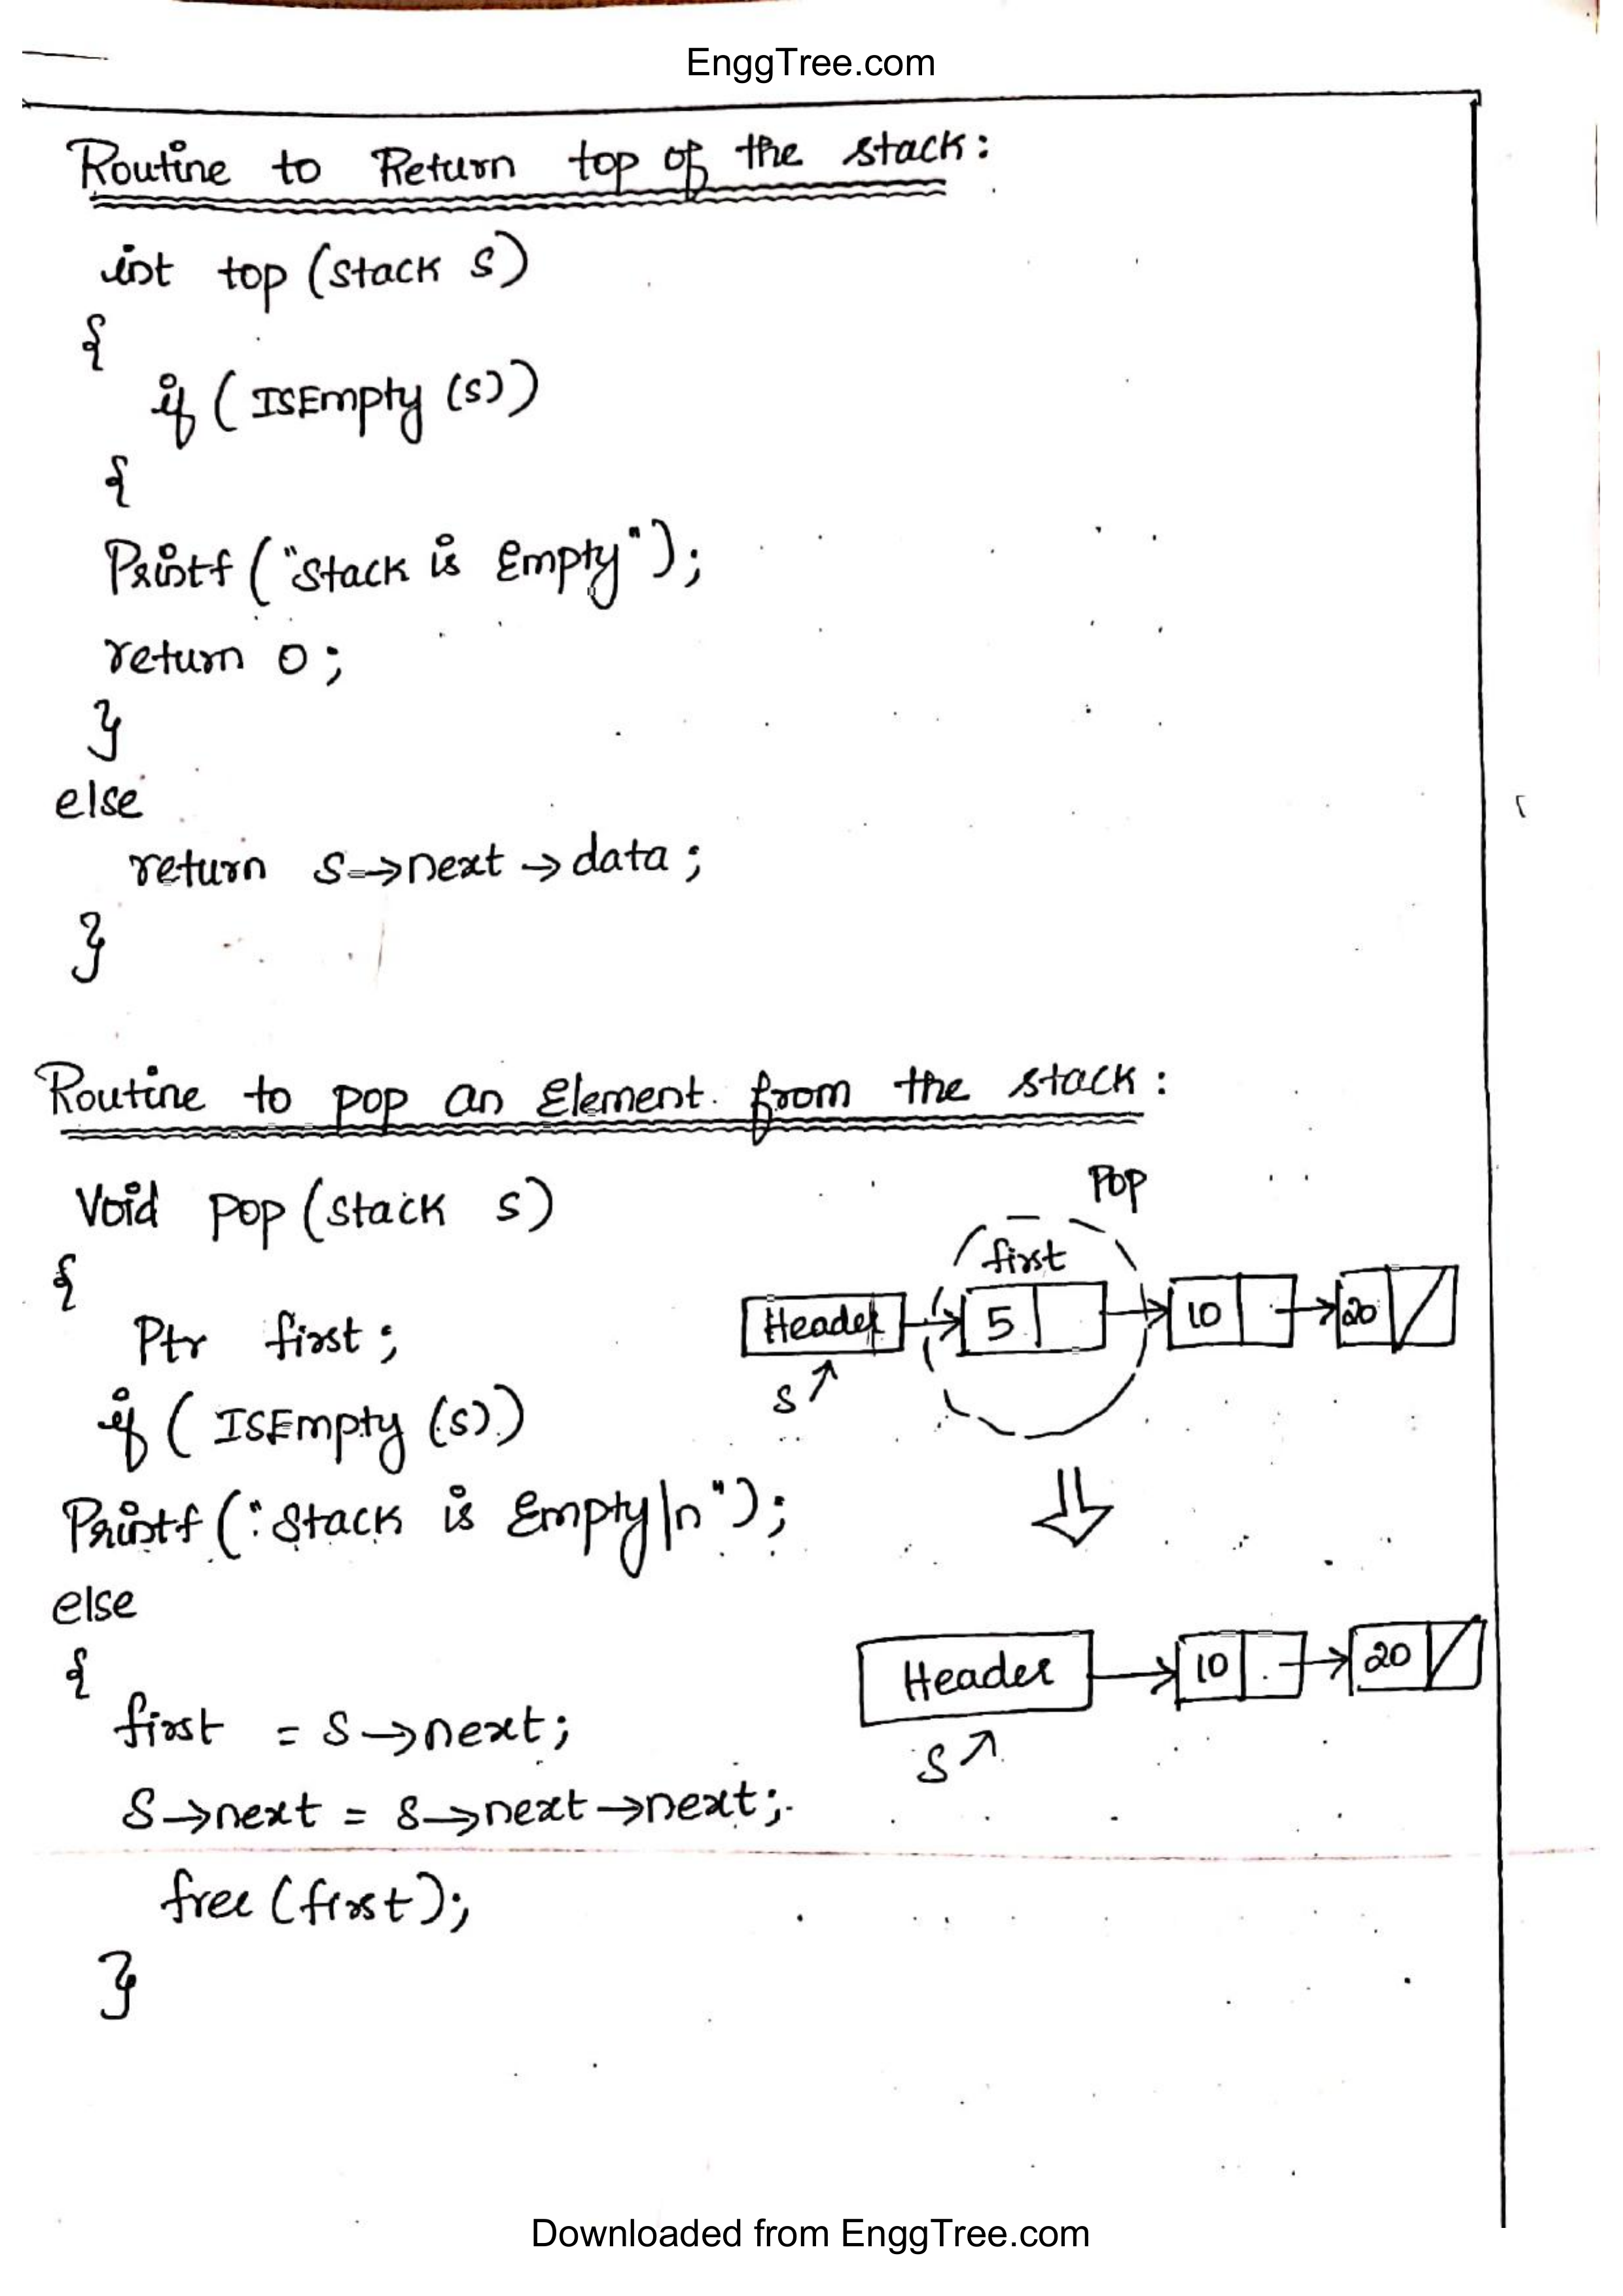 EnggTree.com
Routine to Return top of the stack:
int top (stack S)
{
if (ISEmpty (S))
{
Printf ("Stack is Empty");
return 0;
}
else
return S→next→data;
}
Routine to pop an Element from the stack:
Void pop (stack s)
{
Ptr first;
if (ISEmpty (S))
Printf ("Stack is Empty\n");
else
{
first = S→next;
S→next = S→next→next;
free (first);
}
Pop
first
Header 5 10 20
S
Header 10 20
S
Downloaded from EnggTree.com